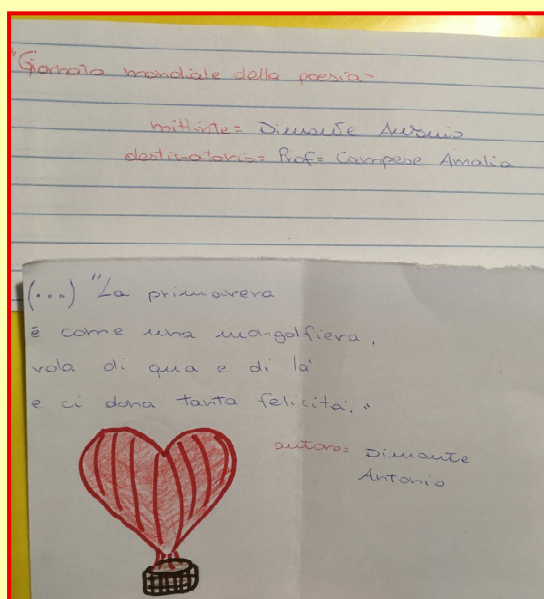 "Giornata mondiale della poesia"
mittente= Dimonte Antonio
destinatario= Prof= Campese Amalia
(...) "La primavera
è come una mongolfiera,
vola di qua e di là
e ci dona tanta felicità."
autore= Dimonte
Antonio